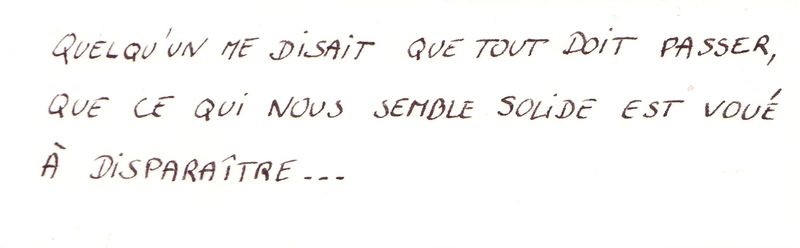 QUELQU'UN ME DISAIT QUE TOUT DOIT PASSER,
QUE CE QUI NOUS SEMBLE SOLIDE EST VOUÉ
À DISPARAÎTRE...